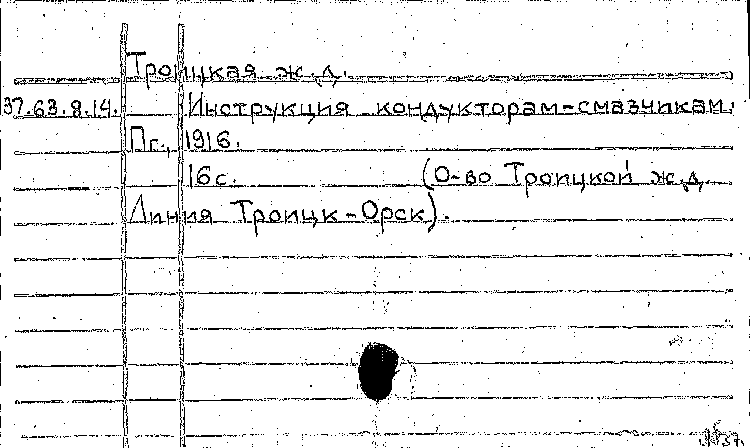 Троицкая ж.д.
37.63.8.14. Инструкция кондукторам-смазчикам.
Пг., 1916.
16с. (О-во Троицкой ж.д.
Линия Троицк-Орск).